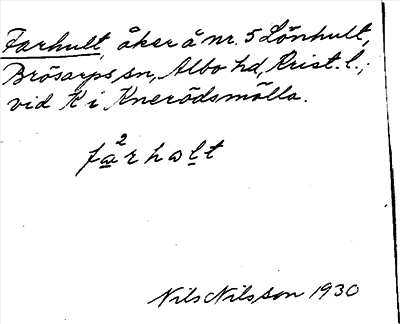 Farhult, åker å nr. 5 Lönhult,
Brösarps sn, Albo hd, Krist. l.;
vid K i Knerödsmölla.
fa²rholt
Nils Nilsson 1930